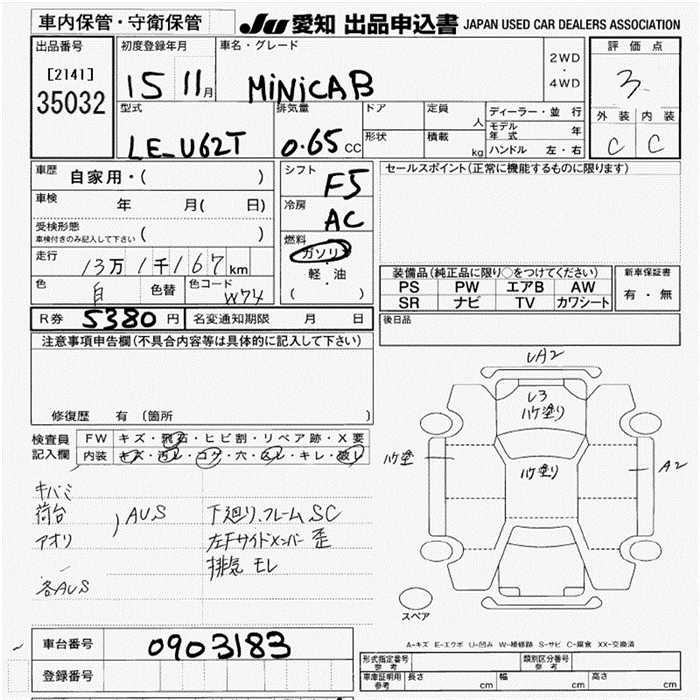 車内保管・守衛保管 JU 愛知 出品申込書 JAPAN USED CAR DEALERS ASSOCIATION
出品番号 初度登録年月 車名・グレード 評価点
[2141] 2WD・4WD
35032 15 11月 MiNiCAB 3
型式 排気量 ドア 定員 人 ディーラー・並行 外装 内装
形状 積載 kg モデル年式 年
LE-U62T 0.65 CC ハンドル 左・右 C C
車歴 自家用・( ) シフト F5 セールスポイント(正常に機能するものに限ります)
車検 年 月( 日) 冷房 AC
受検形態
車検付きのみ記入して下さい ( ) 燃料
走行 13万1千167km ガソリン
軽・油 装備品(純正品に限り○をつけてください) 新車保証書
色 白 色替 色コード W74 ( ) PS PW エアB AW 有・無
SR ナビ TV カワシート
R券 5380円 名変通知期限 月 日 後日品
注意事項申告欄(不具合内容等は具体的に記入して下さい)
修復歴 有 (箇所 )
検査員 FW キズ・飛石・ヒビ割・リペア跡・X要
記入欄 内装 キズ・汚レ・コゲ・穴・スレ・キレ・破レ
キバミ
荷台 AUS 下廻リ、フレームSC
アオリ 左Fサイドメンバー歪
排気モレ
各AUS
UA2
U3
ハケ塗り
ハケ塗
ハケ塗り
A2
スペア
A-キズ E-エクボ U-凹み W-補修跡 S-サビ C-腐食 XX-交換済
車台番号 0903183
登録番号
形式指定番号 参考 類別区分番号 参考
車庫証明用 参考 長さ cm 幅 cm 高さ cm